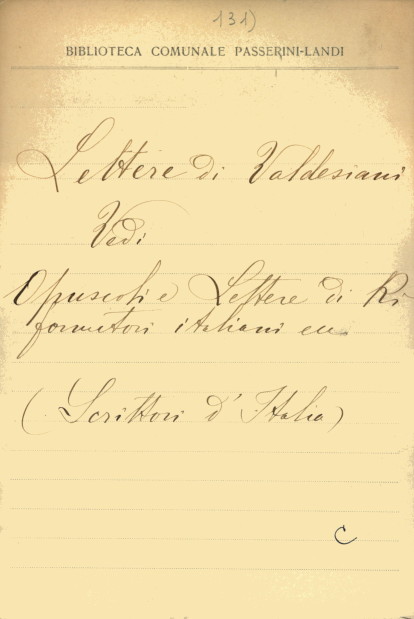 131)
BIBLIOTECA COMUNALE PASSERINI-LANDI
Lettere di Valdesiani
Vedi
Opuscoli e Lettere di Ri
formatori italiani ecc.
(Scrittori d'Italia)
C